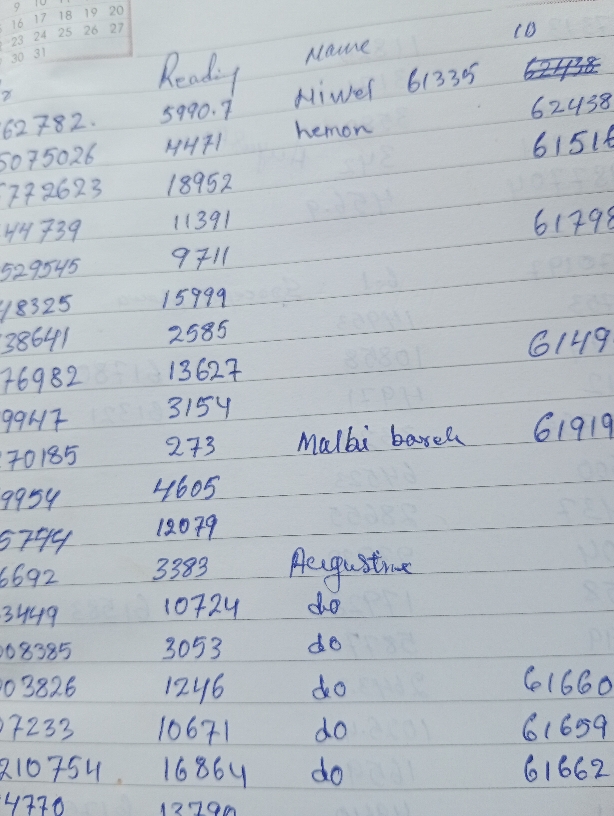 9 10
16 17 18 19 20
23 24 25 26 27
30 31
Reading Name ID
62782. 5990.7 Niwel 61335
5075026 4471 hemon 62438
772623 18952 61516
44739 11391
529545 9711 61798
48325 15999
38641 2585
76982 13627 6149
9947 3154
70185 273 Malbi bareh 61919
9954 4605
5744 12079
6692 3383 Augustine
3449 10724 do
008385 3053 do
03826 1246 do 61660
07233 10671 do 61659
210754 16864 do 61662
4770 13790